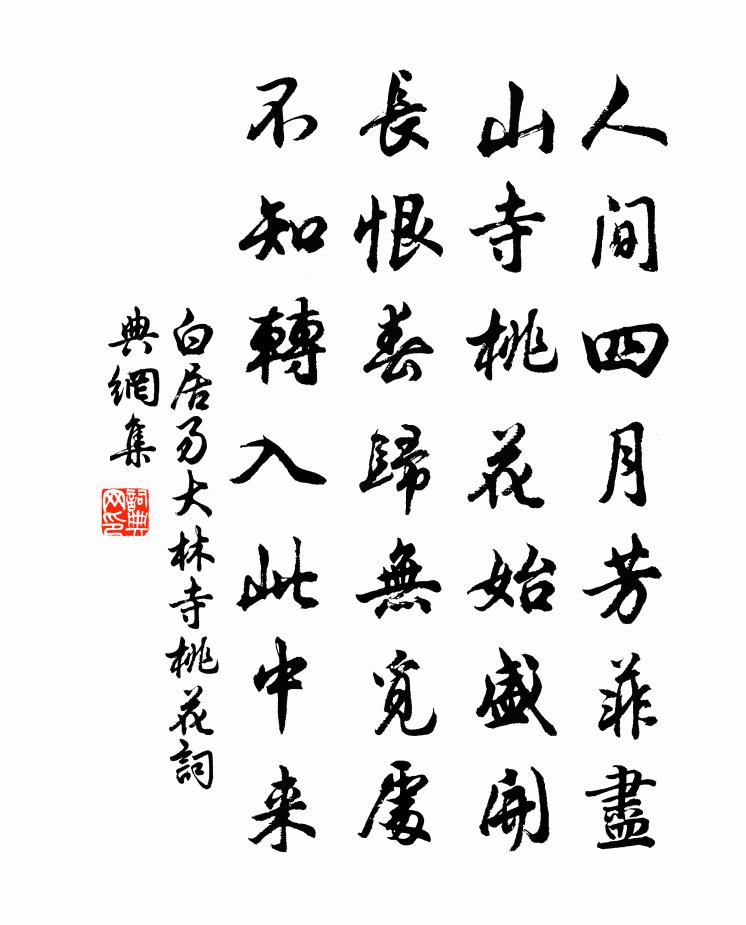 人間四月芳菲盡
山寺桃花始盛開
長恨春歸無覓處
不知轉入此中来
白居易大林寺桃花詞
典網集
詞典网印